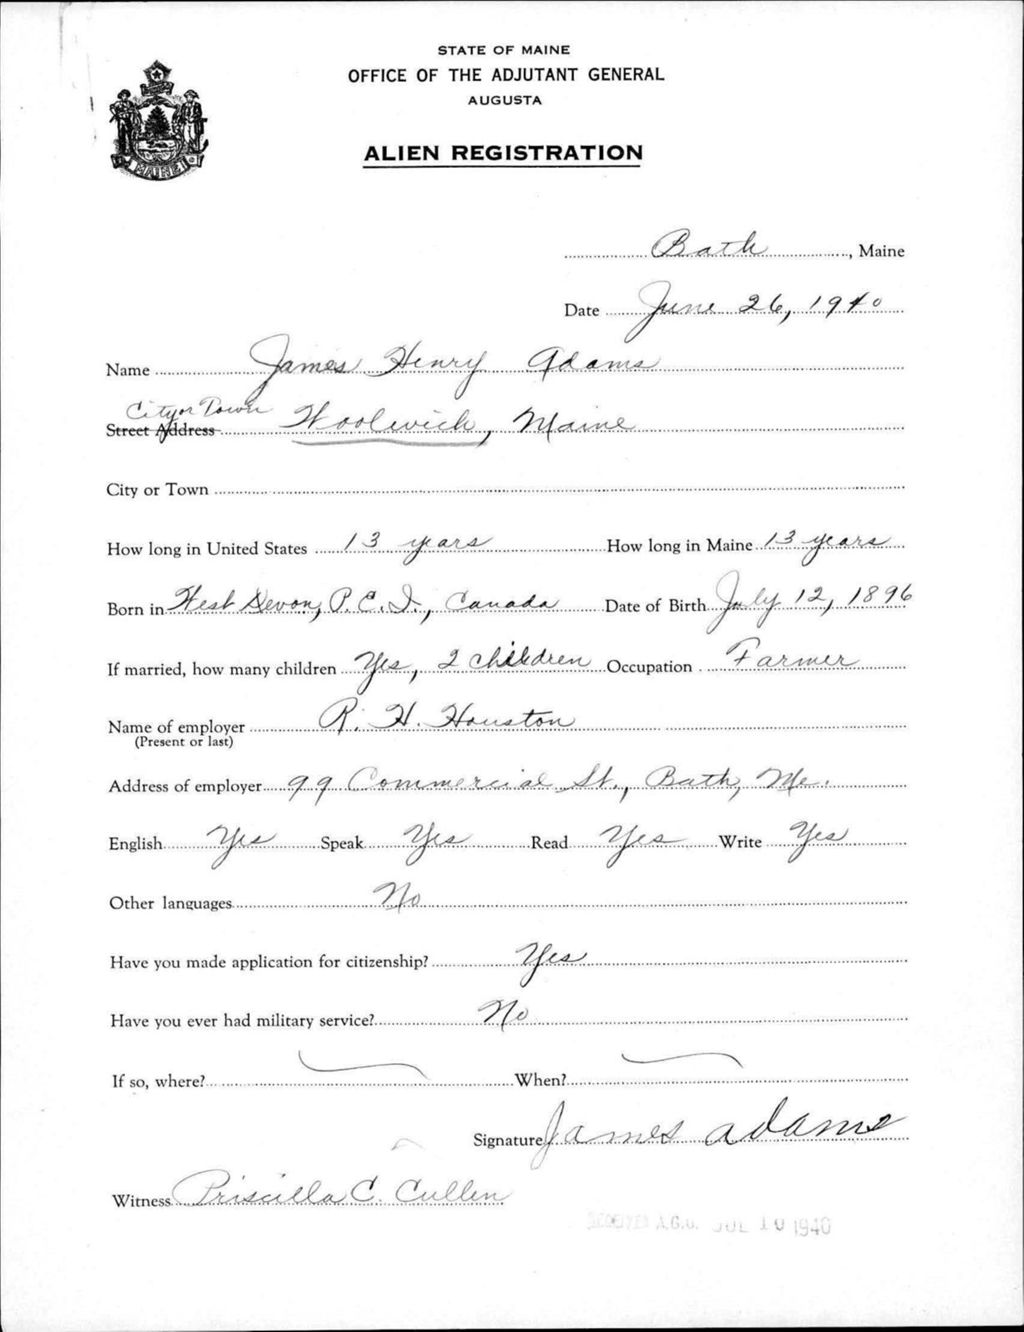 STATE OF MAINE
OFFICE OF THE ADJUTANT GENERAL
AUGUSTA
ALIEN REGISTRATION
MAINE
Bath, Maine
Date June 26, 1940
Name James Henry Adams
City or Town
Street Address Woolwich, Maine
City or Town
How long in United States 13 years How long in Maine 13 years
Born in West Devon, P.E.I., Canada Date of Birth July 12, 1896
If married, how many children Yes, 2 children Occupation Farmer
Name of employer R. H. Houston
(Present or last)
Address of employer 99 Commercial St., Bath, Me.
English Yes Speak Yes Read Yes Write Yes
Other languages No
Have you made application for citizenship? Yes
Have you ever had military service? No
If so, where? When?
Signature James Adams
Witness Priscilla C. Cullen
RECEIVED A.G.O. JUL 10 1940